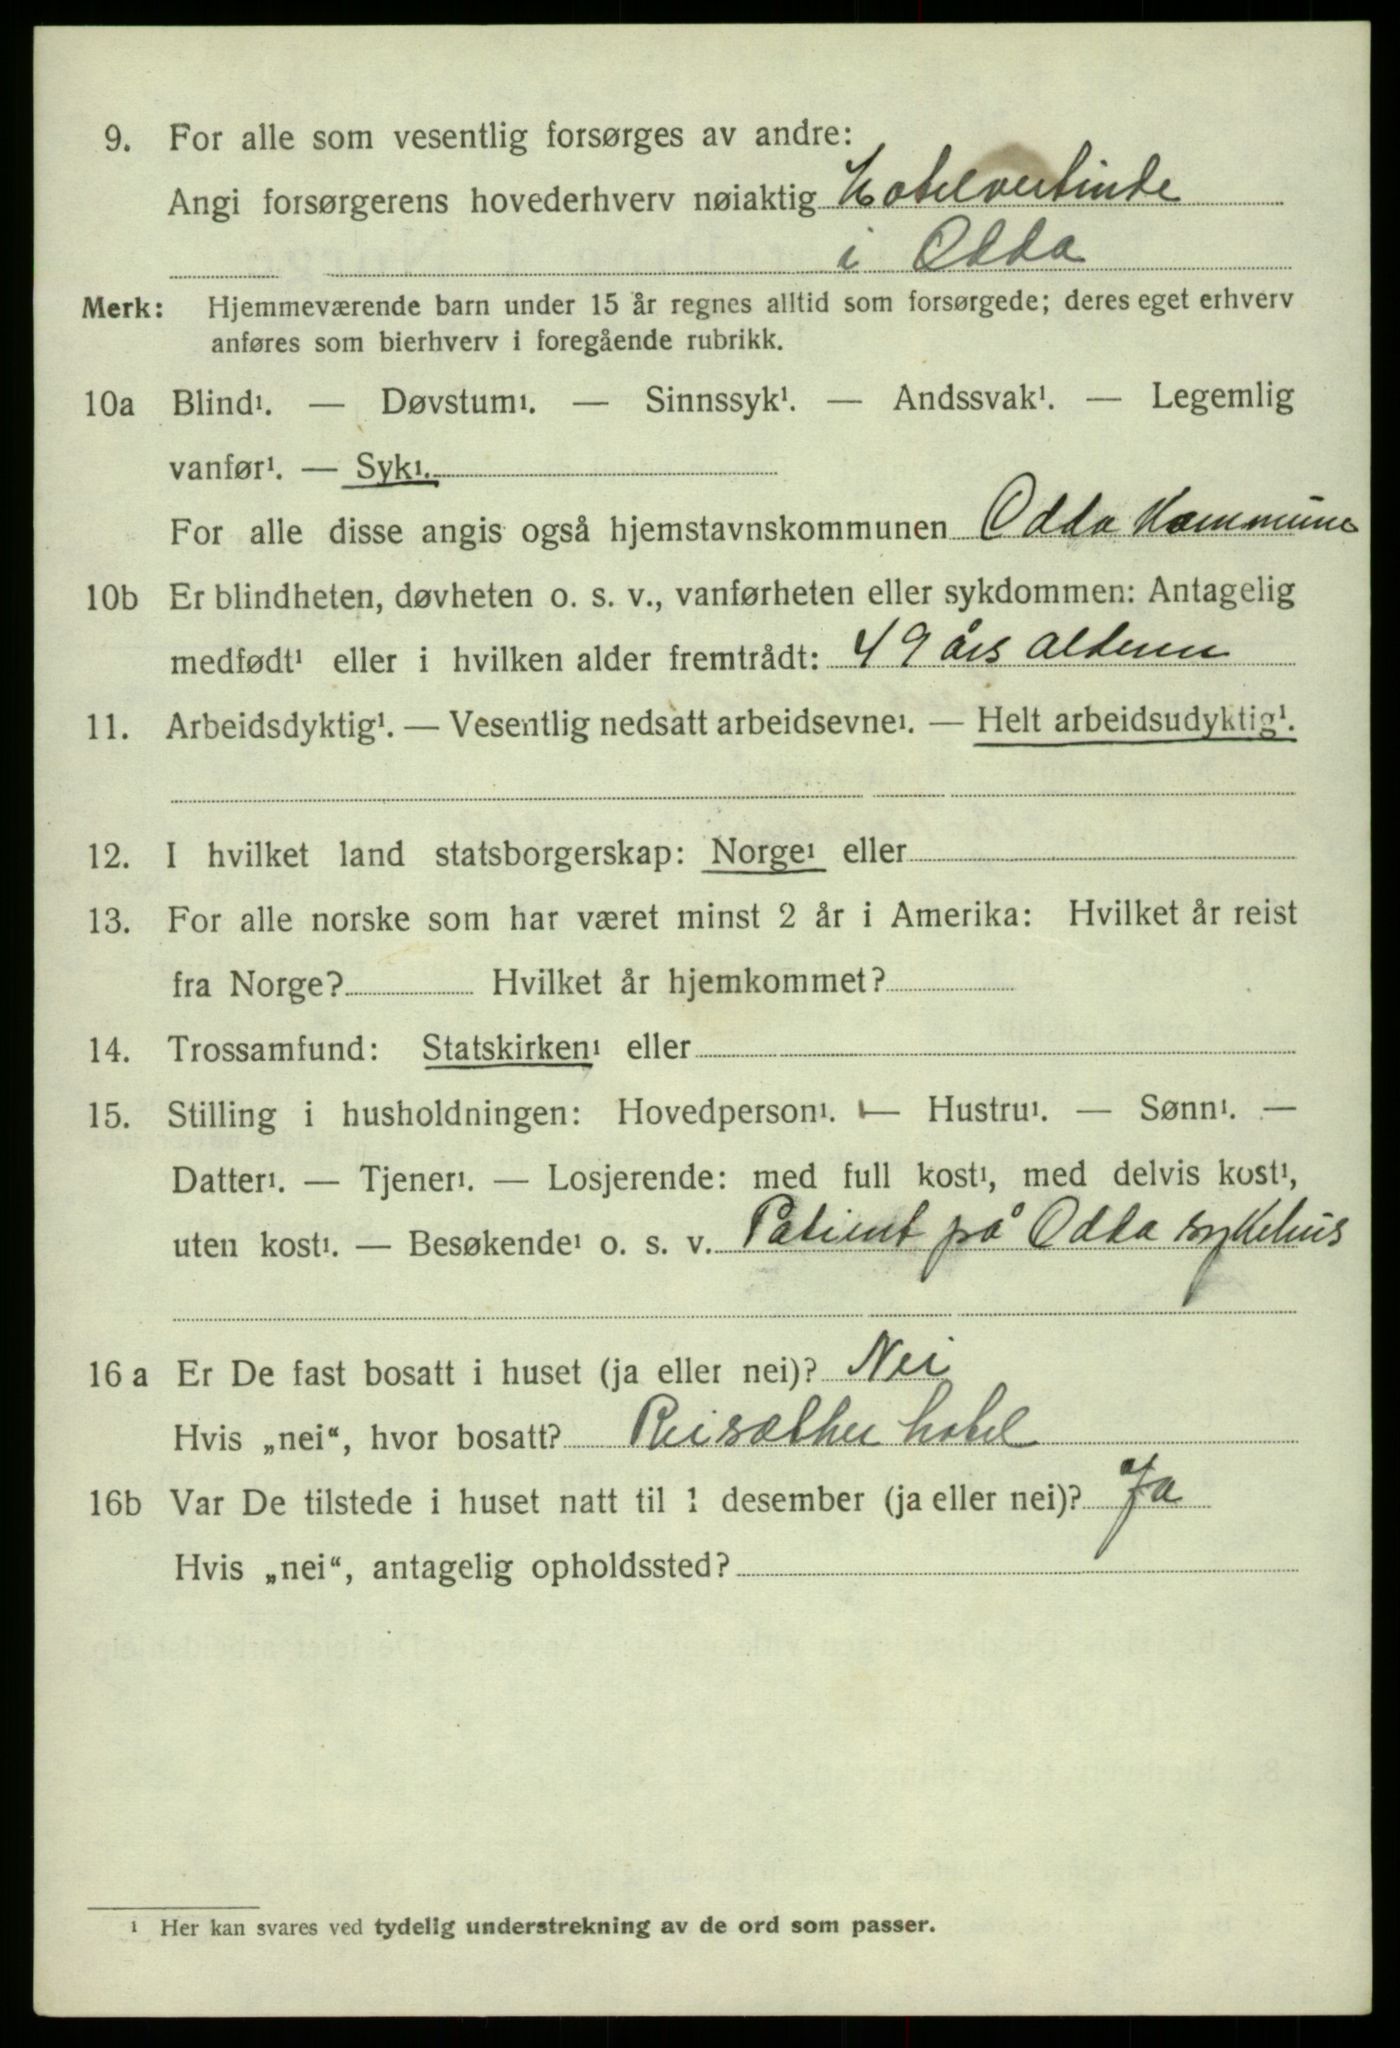 9. For alle som vesentlig forsørges av andre:
Angi forsørgerens hovederhverv nøiaktig Hotelvertinde
i Odda
Merk: Hjemmeværende barn under 15 år regnes alltid som forsørgede; deres eget erhverv
anføres som bierhverv i foregående rubrikk.
10a Blind¹. — Døvstum¹. — Sinnssyk¹. — Andssvak¹. — Legemlig
vanfør¹. — Syk¹.
For alle disse angis også hjemstavnskommunen Odda Kommune
10b Er blindheten, døvheten o. s. v., vanførheten eller sykdommen: Antagelig
medfødt¹ eller i hvilken alder fremtrådt: 49 års alderen
11. Arbeidsdyktig¹. — Vesentlig nedsatt arbeidsevne¹. — Helt arbeidsudyktig¹.
12. I hvilket land statsborgerskap: Norge¹ eller
13. For alle norske som har været minst 2 år i Amerika: Hvilket år reist
fra Norge? Hvilket år hjemkommet?
14. Trossamfund: Statskirken¹ eller
15. Stilling i husholdningen: Hovedperson¹. — Hustru¹. — Sønn¹. —
Datter¹. — Tjener¹. — Losjerende: med full kost¹, med delvis kost¹,
uten kost¹. — Besøkende¹ o. s. v. Patient på Odda sykehus
16 a Er De fast bosatt i huset (ja eller nei)? Nei
Hvis „nei“, hvor bosatt? Reisæther hotel
16b Var De tilstede i huset natt til 1 desember (ja eller nei)? Ja
Hvis „nei“, antagelig opholdssted?
¹ Her kan svares ved tydelig understrekning av de ord som passer.